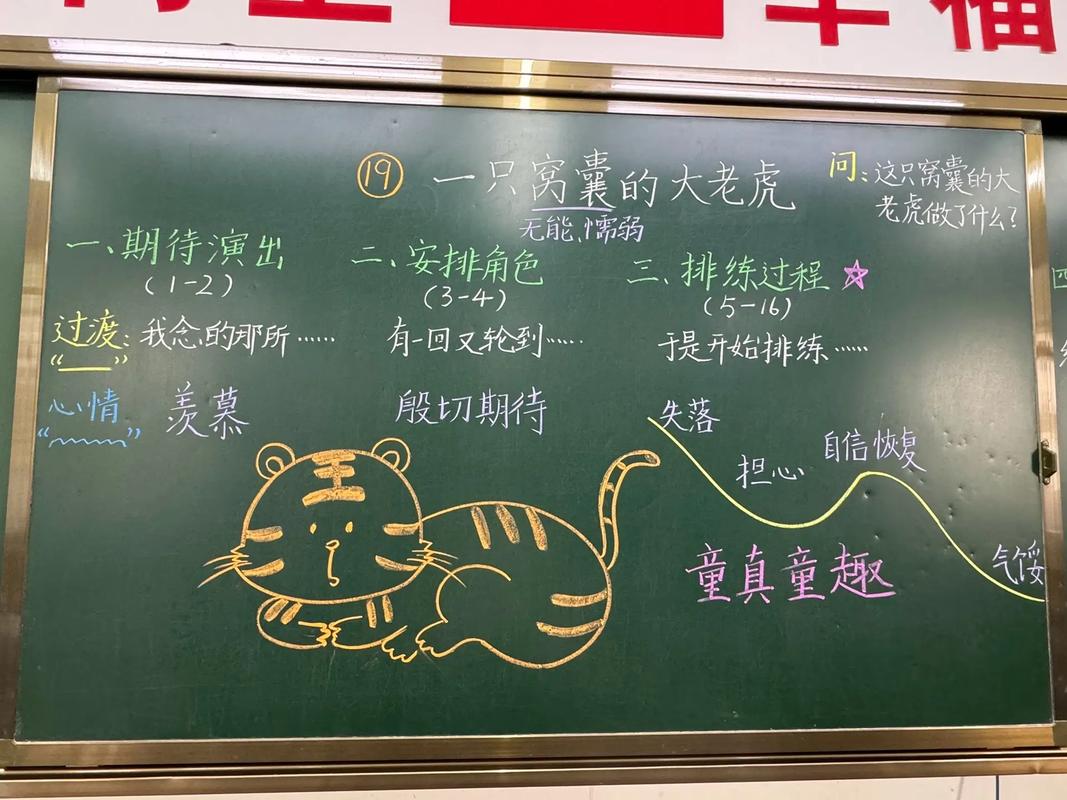 幸福
⑲ 一只窝囊的大老虎
无能、懦弱
问：这只窝囊的大
老虎做了什么？
一、期待演出
（1-2）
二、安排角色
（3-4）
三、排练过程 ☆
（5-16）
过渡：我念的那所……
有一回又轮到……
于是开始排练……
心情
羡慕
殷切期待
失落
担心
自信恢复
气馁
童真童趣
王